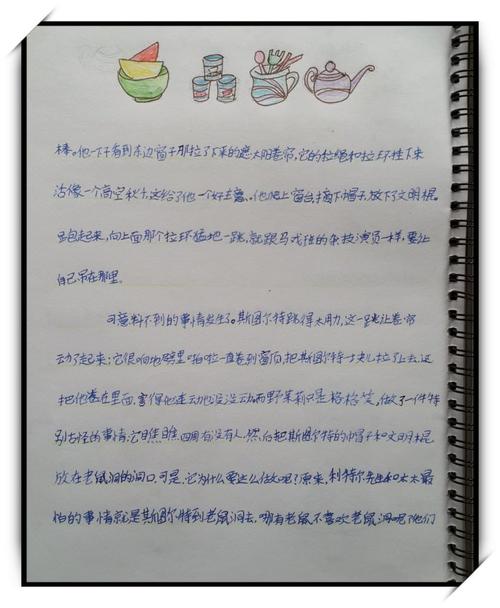 棒。他一下子看到东边窗子那拉了下来的遮太阳卷帘,它的拉绳和拉环挂下来
活像一个高空秋千,这给了他一个好主意。他爬上窗台,摘下帽子,放下文明棍。
跑起来,向上面那个拉环猛地一跳,就跟马戏班的杂技演员一样,要让
自己吊在那里。
可意料不到的事情发生了。斯图尔特跳得太用力,这一跳让卷帘
动了起来:它很响地噼里啪啦一直卷到窗顶,把斯图尔特一块儿拉了上去,还
把他卷在里面,害得他连动也没法动。而野茉莉只是格格笑,做了一件特
别古怪的事情:它瞧瞧四周有没有人,然后把斯图尔特的帽子和文明棍
放在老鼠洞的洞口。可是,它为什么要这么做呢?原来,利特尔先生和太太最
怕的事情就是斯图尔特到老鼠洞去,哪有老鼠不喜欢老鼠洞呢?他们